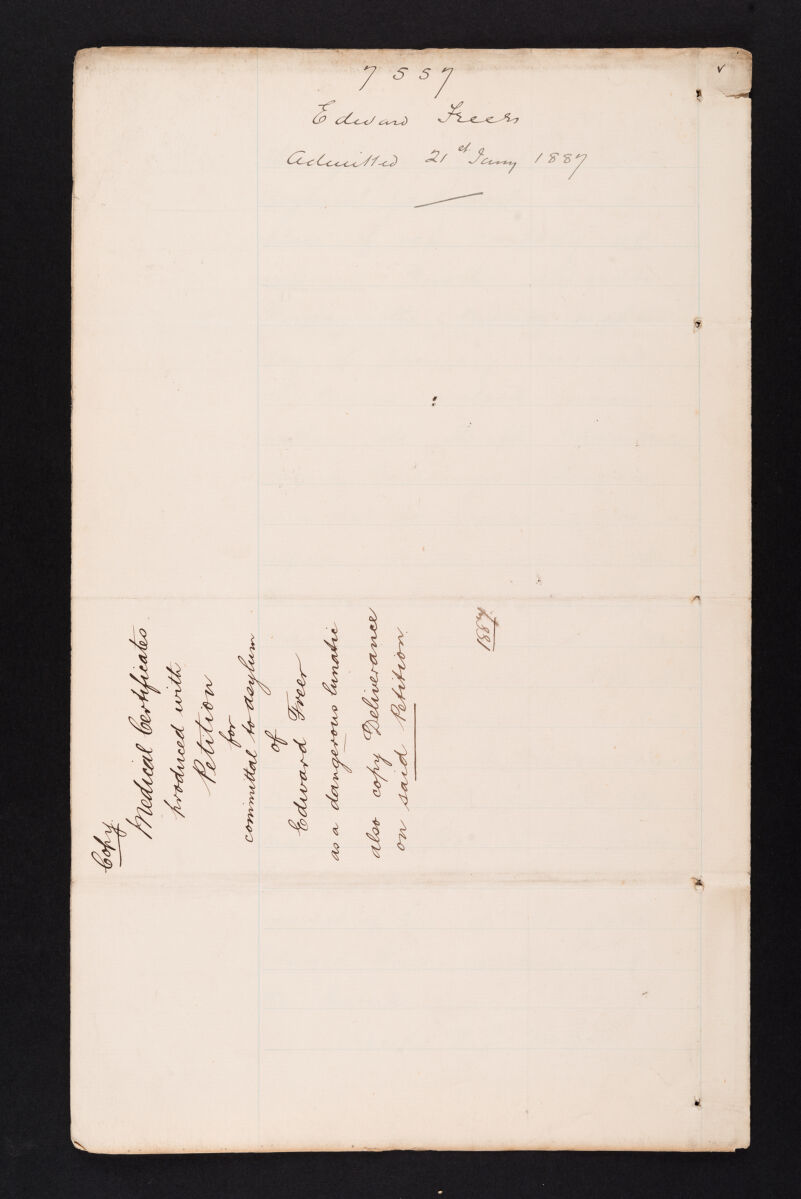 7557
Edward Freer
Admitted 21st Jany 1887
Copy
Medical Certificates
produced with
Petition
for
committal to asylum
of
Edward Freer
as a dangerous lunatic
also copy Deliverance
on said Petition
1887.